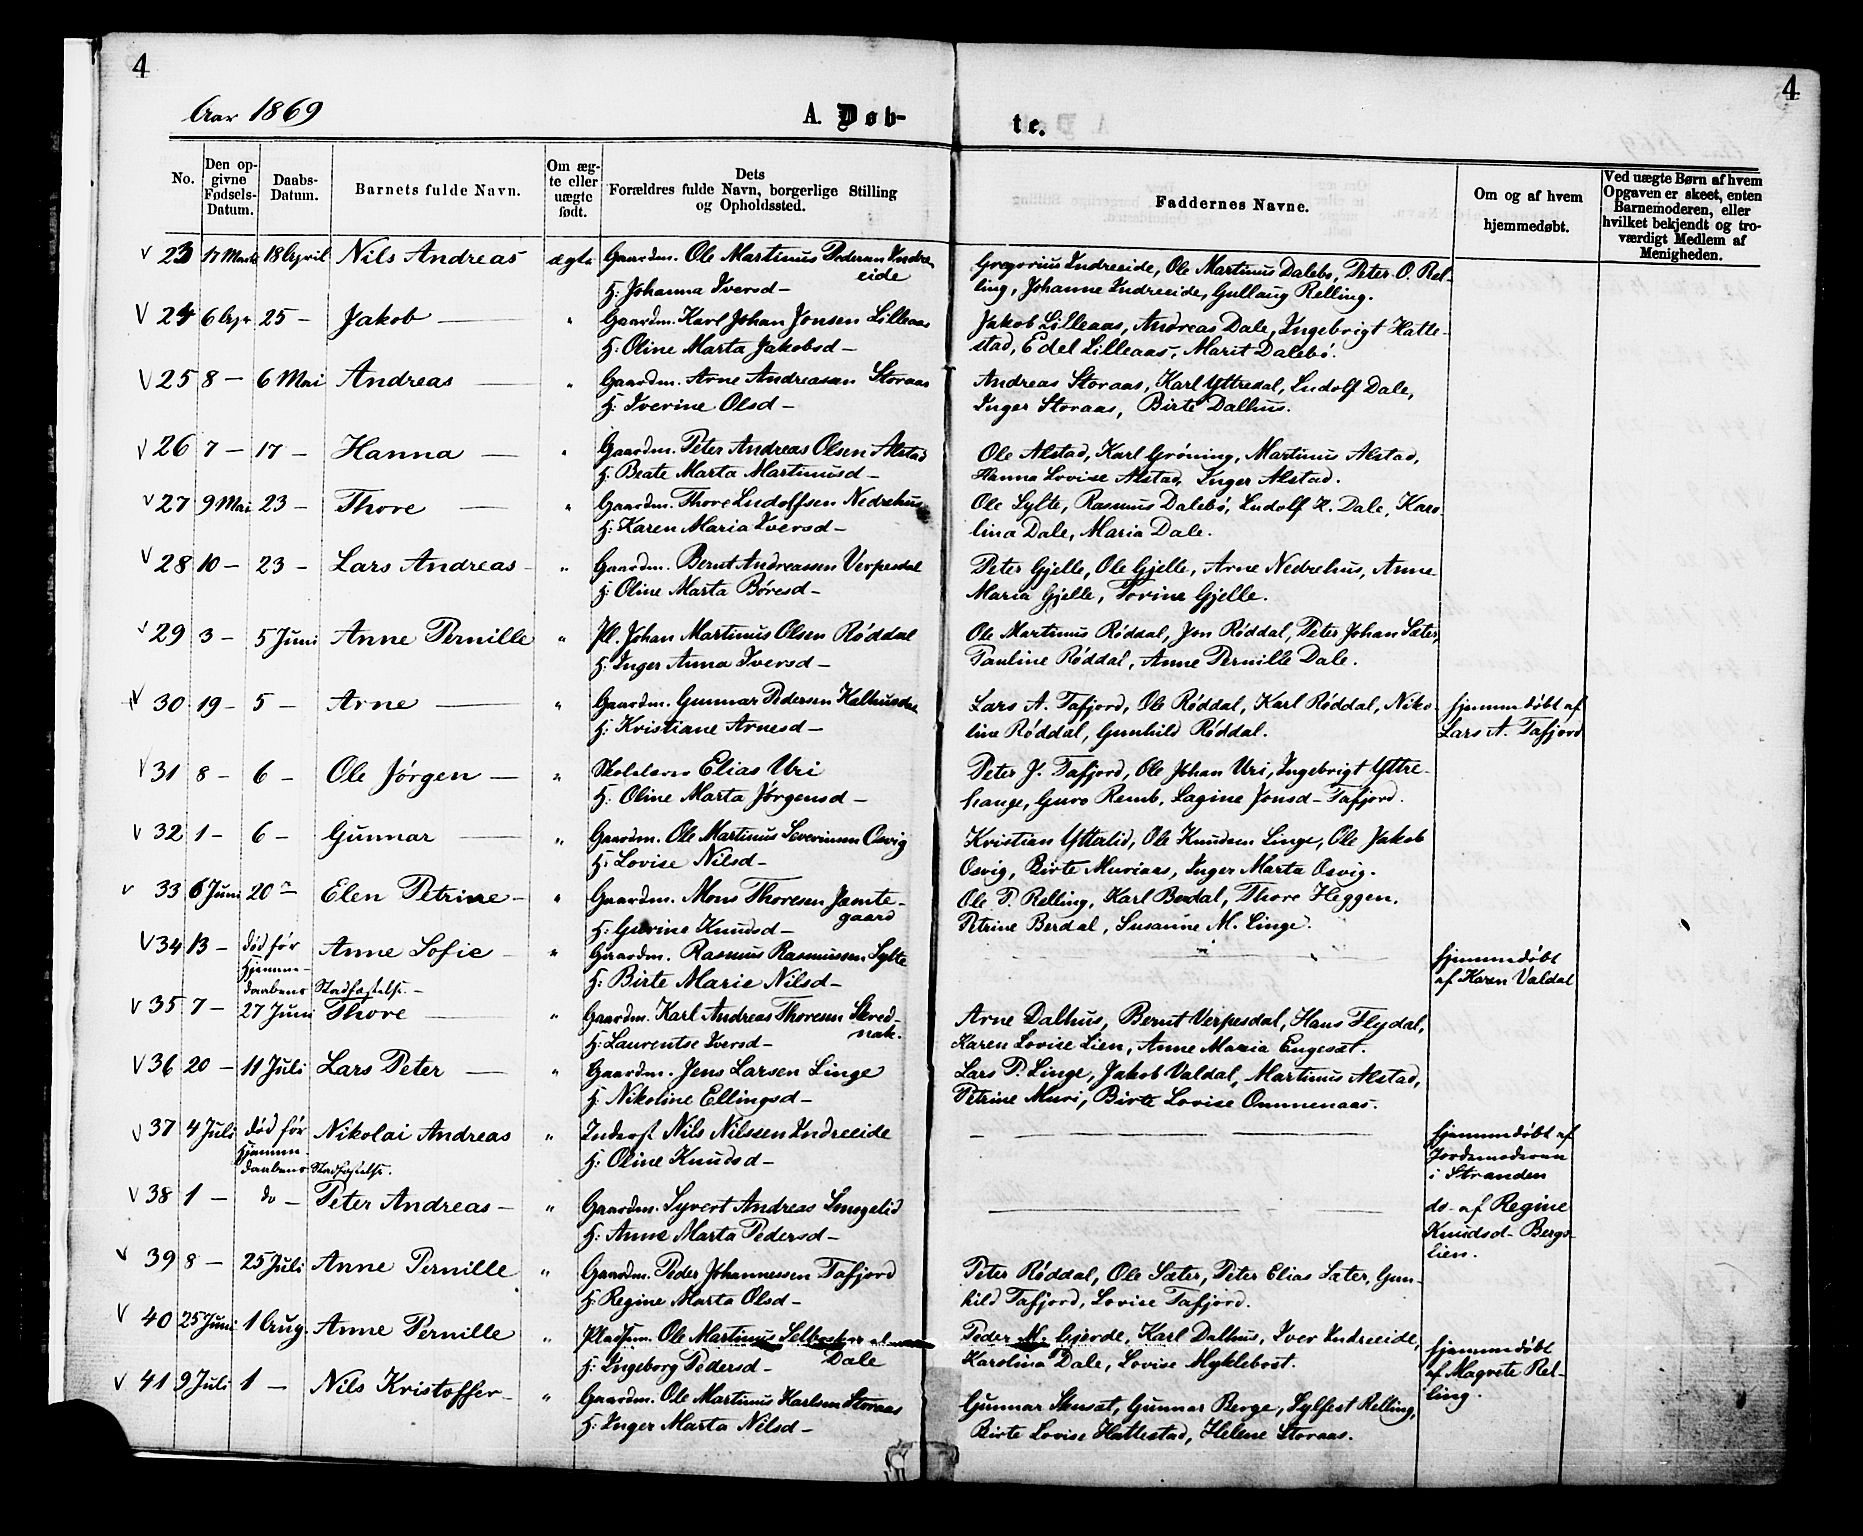 4
4
Aar 1869
A. Døb-
te.
No.
Den op-
givne
Fødsels-
Datum.
Daabs-
Datum.
Barnets fulde Navn.
Om æg-
te eller
uægte
født.
Dets
Forældres fulde Navn, borgerlige Stilling
og Opholdssted.
Faddernes Navne.
Om og af hvem
hjemmedøbt.
Ved uægte Børn af hvem
Opgaven er skeet, enten
Barnemoderen, eller
hvilket bekjendt og tro-
værdigt Medlem af
Menigheden.
23 17 Marts 18 April Nils Andreas ægte Gaardm. Ole Martinus Pedersen Indre-
eide
H: Johanna Iversd –
Gregorius Indreeide, Ole Martinus Dalebø, Peter O. Rel-
ling, Johanne Indreeide, Gullaug Relling.
24 6 Apr 25 – Jakob — " Gaardm. Karl Johan Jonsen Lilleaas
H: Oline Marta Jakobsd –
Jakob Lilleaas, Andreas Dale, Ingebrigt Hatte-
stad, Edel Lilleaas, Marit Dalebø.
25 8 – 6 Mai Andreas — " Gaardm. Arne Andreasen Storaas
H: Iverine Olsd –
Andreas Storaas, Karl Yttredal, Ludolf Dale,
Inger Storaas, Birte Dalhus.
26 7 – 17 – Hanna — " Gaardm. Peter Andreas Olsen Alstad
H: Beate Marta Martinusd –
Ole Alstad, Karl Grøning, Martinus Alstad,
Hanna Lovise Alstad, Inger Alstad.
27 9 Mai 23 – Thore — " Gaardm. Thore Ludolfsen Nedrehus
H: Karen Maria Iversd –
Ole Sylte, Rasmus Dalebø, Ludolf K. Dale, Karo-
lina Dale, Maria Dale.
28 10 – 23 – Lars Andreas – " Gaardm. Bernt Andreassen Verpesdal
H: Oline Marta Børesd –
Peter Gjelle, Ole Gjelle, Arne Nedrehus, Anne
Maria Gjelle, Torine Gjelle.
29 3 – 5 Juni Anne Pernille " Pl. Johan Martinus Olsen Røddal
H: Inger Anna Iversd –
Ole Martinus Røddal, Jon Røddal, Peter Johan Sæter,
Pauline Røddal, Anne Pernille Dale.
30 19 – 5 – Arne — " Gaardm. Gunnar Pedersen Kalhusdal
H: Kristiane Arnesd –
Lars A. Tafjord, Ole Røddal, Karl Røddal, Niko-
line Røddal, Gunhild Røddal.
hjemmedøbt af
Lars A. Tafjord
31 8 – 6 – Ole Jørgen — " Skolelærer Elias Uri
H: Oline Marta Jørgensd –
Peter J. Tafjord, Ole Johan Uri, Ingebrigt Yttre-
hauge, Guro Remb, Lagine Jonsd – Tafjord.
32 1 – 6 – Gunnar — " Gaardm. Ole Martinus Severinsen Osvig
H: Lovise Nilsd –
Kristian Ytterlid, Ole Knudsen Linge, Ole Jakob
Osvig, Birte Muriaas, Inger Marta Osvig.
33 6 Juni 20 – Elen Petrine – " Gaardm. Mons Thoresen Jamte-
gaard
H: Gurine Knudsd –
Ole P. Relling, Karl Berdal, Thore Heggen,
Petrine Berdal, Susanne M. Linge.
34 13 – død før Anne Sofie – " Gaardm. Rasmus Rasmussen Sylte
Hjemme-
daabens Stadfæstelse. –
H: Birte Marie Nilsd –
hjemmedøbt
af Karen Valdal
35 7 – 27 Juni Thore — " Gaardm. Karl Andreas Thoresen Skred-
nak.
H: Laurentse Iversd –
Arne Dalhus, Bernt Verpesdal, Hans Flydal,
Karen Lovise Lien, Anne Maria Engeset.
36 20 – 11 Juli Lars Peter — " Gaardm. Jens Larsen Linge
H: Nikoline Ellingsd –
Lars P. Linge, Jakob Valdal, Martinus Alstad,
Petrine Muri, Birte Lovise Ommenaas.
37 4 Juli død før Nikolai Andreas " Inderst Nils Nilssen Indreeide
Hjemme-
daabens Stadfæstelse.
H: Oline Knudsd –
hjemmedøbt af
Jordemoderen
i Stranden
38 1 – do – Peter Andreas – " Gaardm. Syvert Andreas
H: Anne Marta Pedersd –
do. af Regine
Knudsd – Bergs-
lien.
39 8 – 25 Juli Anne Pernille " Gaardm. Peder Johannessen Tafjord
H: Regine Marta Olsd –
Peter Røddal, Ole Sæter, Peter Elias Sæter, Gun-
hild Tafjord, Lovise Tafjord.
40 25 Juni 1 Aug. Anne Pernille " Pladsm. Ole Martinus
Dale
H: Ingeborg Pedersd –
Peder M. Gjerde, Karl Dalhus, Iver Indreeide,
Karolina Dale, Lovise Myklebost.
hjemmedøbt
af Magrete Rel-
ling.
41 9 Juli 1 – Nils Kristoffer – " Gaardm. Ole Martinus Karlsen Storaas
H: Inger Marta Nilsd –
Gunnar Skuset, Gunnar Berge, Sylfest Relling,
Birte Lovise Hattestad, Helene Storaas.